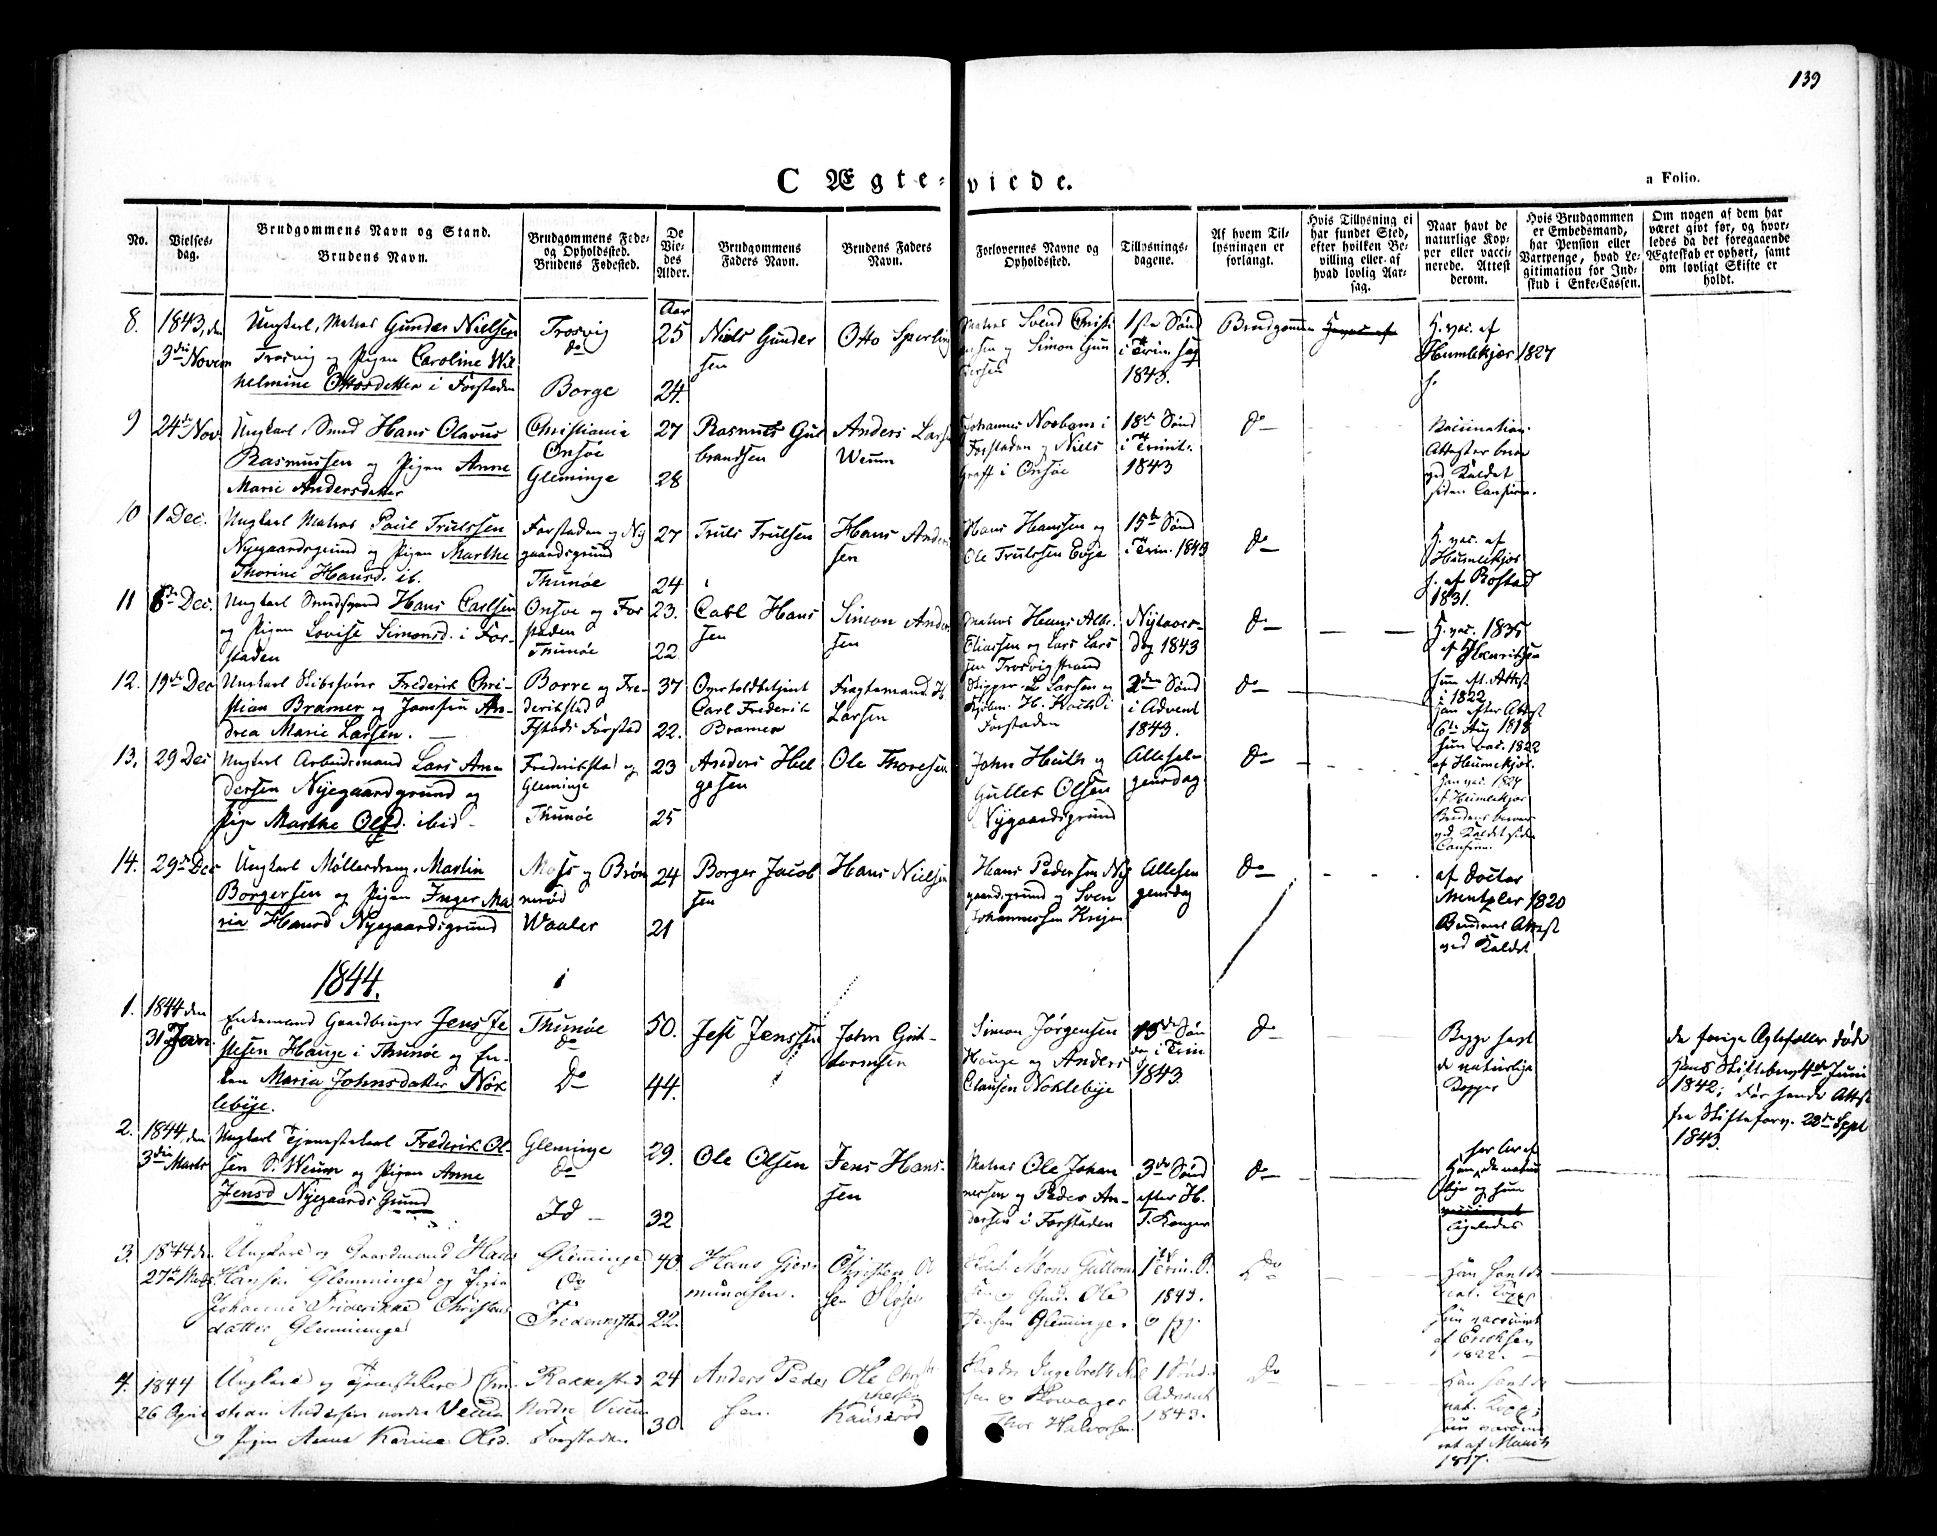 139
C Ægte-viede.
a Folio.
No.
Vielses-
dag.
Brudgommens Navn og Stand.
Brudens Navn.
Brudgommens Føde-
og Opholdssted.
Brudens Fødested.
De
Vie-
des
Alder.
Brudgommens
Faders Navn.
Brudens Faders
Navn.
Forlovernes Navne og
Opholdssted.
Tillysnings-
dagene.
Af hvem Til-
lysningen er
forlangt.
Hvis Tillysning ei
har fundet Sted,
efter hvilken Be-
villing eller af
hvad lovlig Aar-
sag.
Naar havt de
naturlige Kop-
per eller vacci-
nerede. Attest
derom.
Hvis Brudgommen
er Embedsmand,
har Pension eller
Vartpenge, hvad Le-
gitimation for Ind-
skud i Enke-Cassen.
Om nogen af dem har
været givt før, og hvor-
ledes da det foregaaende
Ægteskab er ophørt, samt
om lovligt Skifte er
holdt.
Aar
8.
1843, den
3die Novem
Ungkarl, Matros Gunder Nielsen
Trosvig og Pigen Caroline Wil
helmine Ottosdatter i Forstaden
Trosvig
do
Borge
25
24.
Niels Gunder
sen
Otto Sperling
Matros Svend Christi
ansen og Simon Gun
dersen
1ste Sønd
i Trin.
1843.
Brudgommen
H. vac. af
Humlekjær 1827
9
24de Nov.
Ungkarl, Smed Hans Olavus
Rasmussen og Pigen Anne
Marie Andersdatter
Christiania
Onsøe
Gleminge
27
28
Rasmus Gul
brandsen
Anders Larsen
Weum
Johannes Norbom i
Forstaden og Niels
Graff i Onsøe
18de Sønd
i Trinit.
1843
do
Vaccination.
Attester
ved Kaldet
siden Confirm.
10
1 Dec.
Ungkarl Matros Paul Trulssen
Nygaardsgrund og Pigen Marthe
Thorine Hansd. ib.
Forstaden og Ny
gaardsgrund
Thunøe
27
24
Truls Trulsen
Hans Ander
sen
Hans Hanssen og
Ole Trulssen Evje
15de Sønd
i Trin. 1843
do
H. vac. af
Humlekjær
h. af Rostad
1831.
11
6te Dec.
Ungkarl Smedsvend Hans Carlsen
og Pigen Lovise Simonsd. i For-
staden
Onsøe og For
staden
Thunøe
23.
22
Carl Hans
sen
Simon Ander
sen
Matros Hans Albr.
Eliassen og Lars Lars
sen Trosvigstrand
Nytaars-
dag 1843
do
H. vac. 1835
12.
19de Dec
Ungkarl Skibsfører Frederik Chri-
stian Bramer og Jomfru An-
drea Marie Larsen.
Borre og Fre-
derikstad
Fstads Forstad
37
22.
Overtoldbetjent
Carl Frederik
Bramer
Fragtemand H.
Larsen
Skipper L. Larsen og
Kjøbm. H. Huth i
Forstaden
2den Sønd
i Advent
1843.
do
hun eft. Attest
i 1822
han efter Attest
6te Aug 1818
13.
29 Dec
Ungkarl Arbeidsmand Lars An-
dersen Nyegaardgrund og
Pige Marthe Olsd. ibid.
Frederikstad og
Gleminge
Thunøe
23
25
Anders Hel
gesen
Ole Thoresen
John Huth og
Gullek Olsen
Nygaardsgrund
Allehel-
gensdag
do
hun vac. 1822
af Humlekjær
han vac. 1827
af Humlekjær
ved Kaldet
Confirm.
14.
29de Dec
Ungkarl Møllerdreng, Martin
Borgersen og Pigen Inger Ma
ria Hansd Nyegaardsgrund
Moss og Brøn
nerød
Waaler
24
21
Borger Jacob
sen
Hans Nielsen
Hans Pedersen Ny
gaardsgrund og Sven
Johannessen
Allehel
gensdag
do
af Doctor
Mentzler 1820
Brudens Attest
ved Kaldet
1844.
1.
1844 den
31 Jan.
Enkemand Gaardbruger Jens Je
stesen Hauge i Thunøe og En-
ken Maria Johnsdatter Nøk
lebye.
Thunøe
do
do
50.
44.
Jest Jenssen
John Gut-
tormsen
Simon Jørgensen
Hauge og Anders
Clausen Noklebye
15de Søn
dag i Trin
1843.
do
Begge havt
de naturlige
Kopper
de forige Ægtefæller døde
1842;
fra Skifteforv. 28de Sept
1843.
2.
1844, den
3die Marts
Ungkarl Tjenestekarl Frederik Ol-
sen S. Weum og Pigen Anne
Jensd Nyegaards Grund
Gleminge
do
Id
29.
32
Ole Olsen
Jens Hans-
sen
Matros Ole Johan
nessen og Peder An-
dersen i Forstaden
3de Sønd
efter H.
T. Konger
do
har Ar af
de natur
lige og hun
vaccineret
ligeledes
3.
1844 den
27de Marts
Ungkarl og Gaardmand Hans
Hansen Glemminge og Pigen
Johanne Friderikke Christens
datter Glemminge
Glemminge
do
Fredericksstad
40.
22.
Hans Gjer
mundsen.
Christen Ol
sen
Mons Guttorm
sen og Gmd. Ole
Jensen Glemminge.
1
Trin. S.
1843.
og flg.
do
Han havt de
nat. Kopp.
hun vaccineret
af Ericksen
1822.
4.
1844
26 April
Ungkarl og Tjenestekarl Chri-
stian Andersen nordre Veum
og Pigen Anne Karine Olsd.
Rakkestad
Nordre Veum
Forstaden
24
30
Anders Peder
sen.
Ole Christ
phersen
Ingebreth Niel
sen og
Thor Halvorsen.
1 Sønd.
Advent
1843.
do
Han havt de
nat. Kopp;
hun vaccine
ret af Munch
1817.